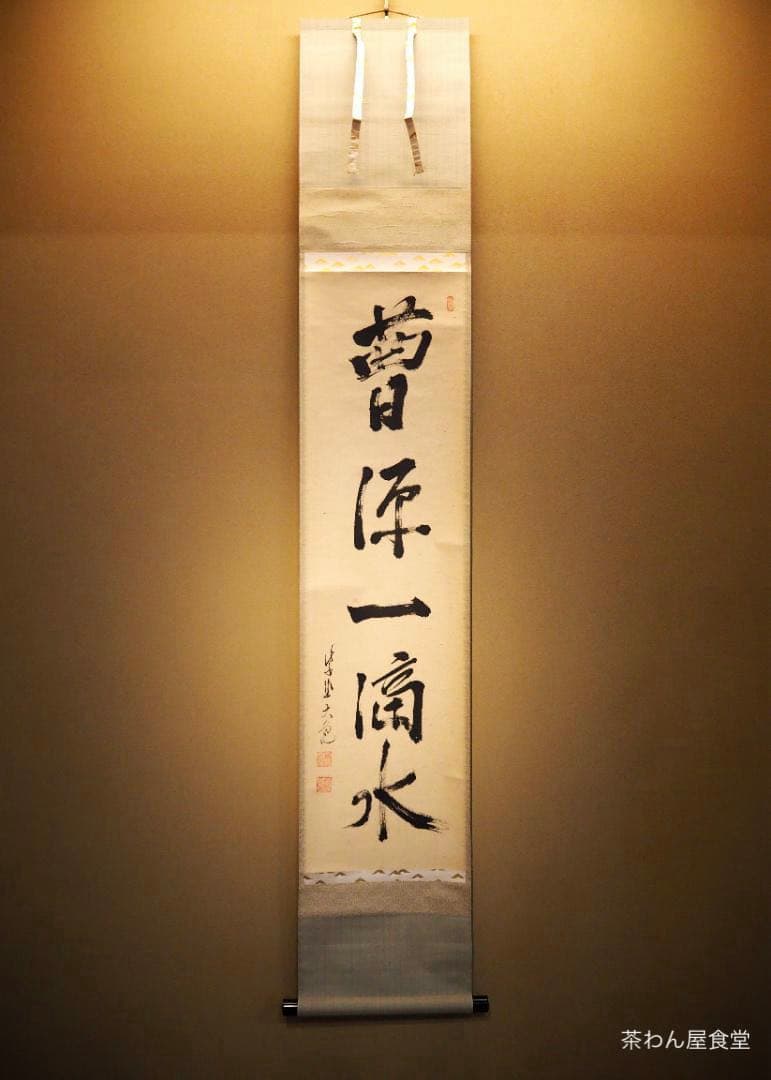 曹源一滴水
茶わん屋食堂